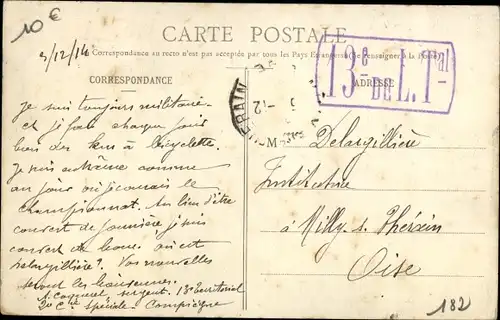 10€
CARTE POSTALE
3/12/14
Correspondance au recto n'est pas acceptée par tous les Pays Etrangers. Se renseigner à la Poste
13e DE L. Tal
CORRESPONDANCE
ADRESSE
Je suis toujours militaire
et je fais chaque jour
bien des kms à bicyclette.
Je suis même comme
au jour où je courais le
championnat. Au lieu d'être
couvert de poussière je suis
couvert de boue, où est
Delargillière? Vos nouvelles
seront les bienvenues.
sergent. 13e Territorial
20e Cie Spéciale - Compiègne
M Delargillière
Instituteur
à Milly s. Thérain
Oise
182